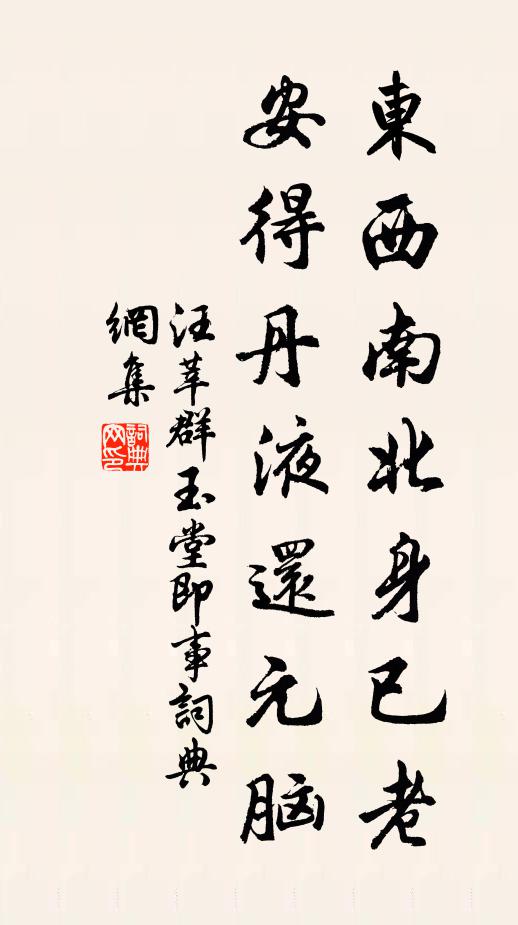 東西南北身已老
安得丹液還元脑
汪莘群玉堂即事詞典
網集
詞典
网印